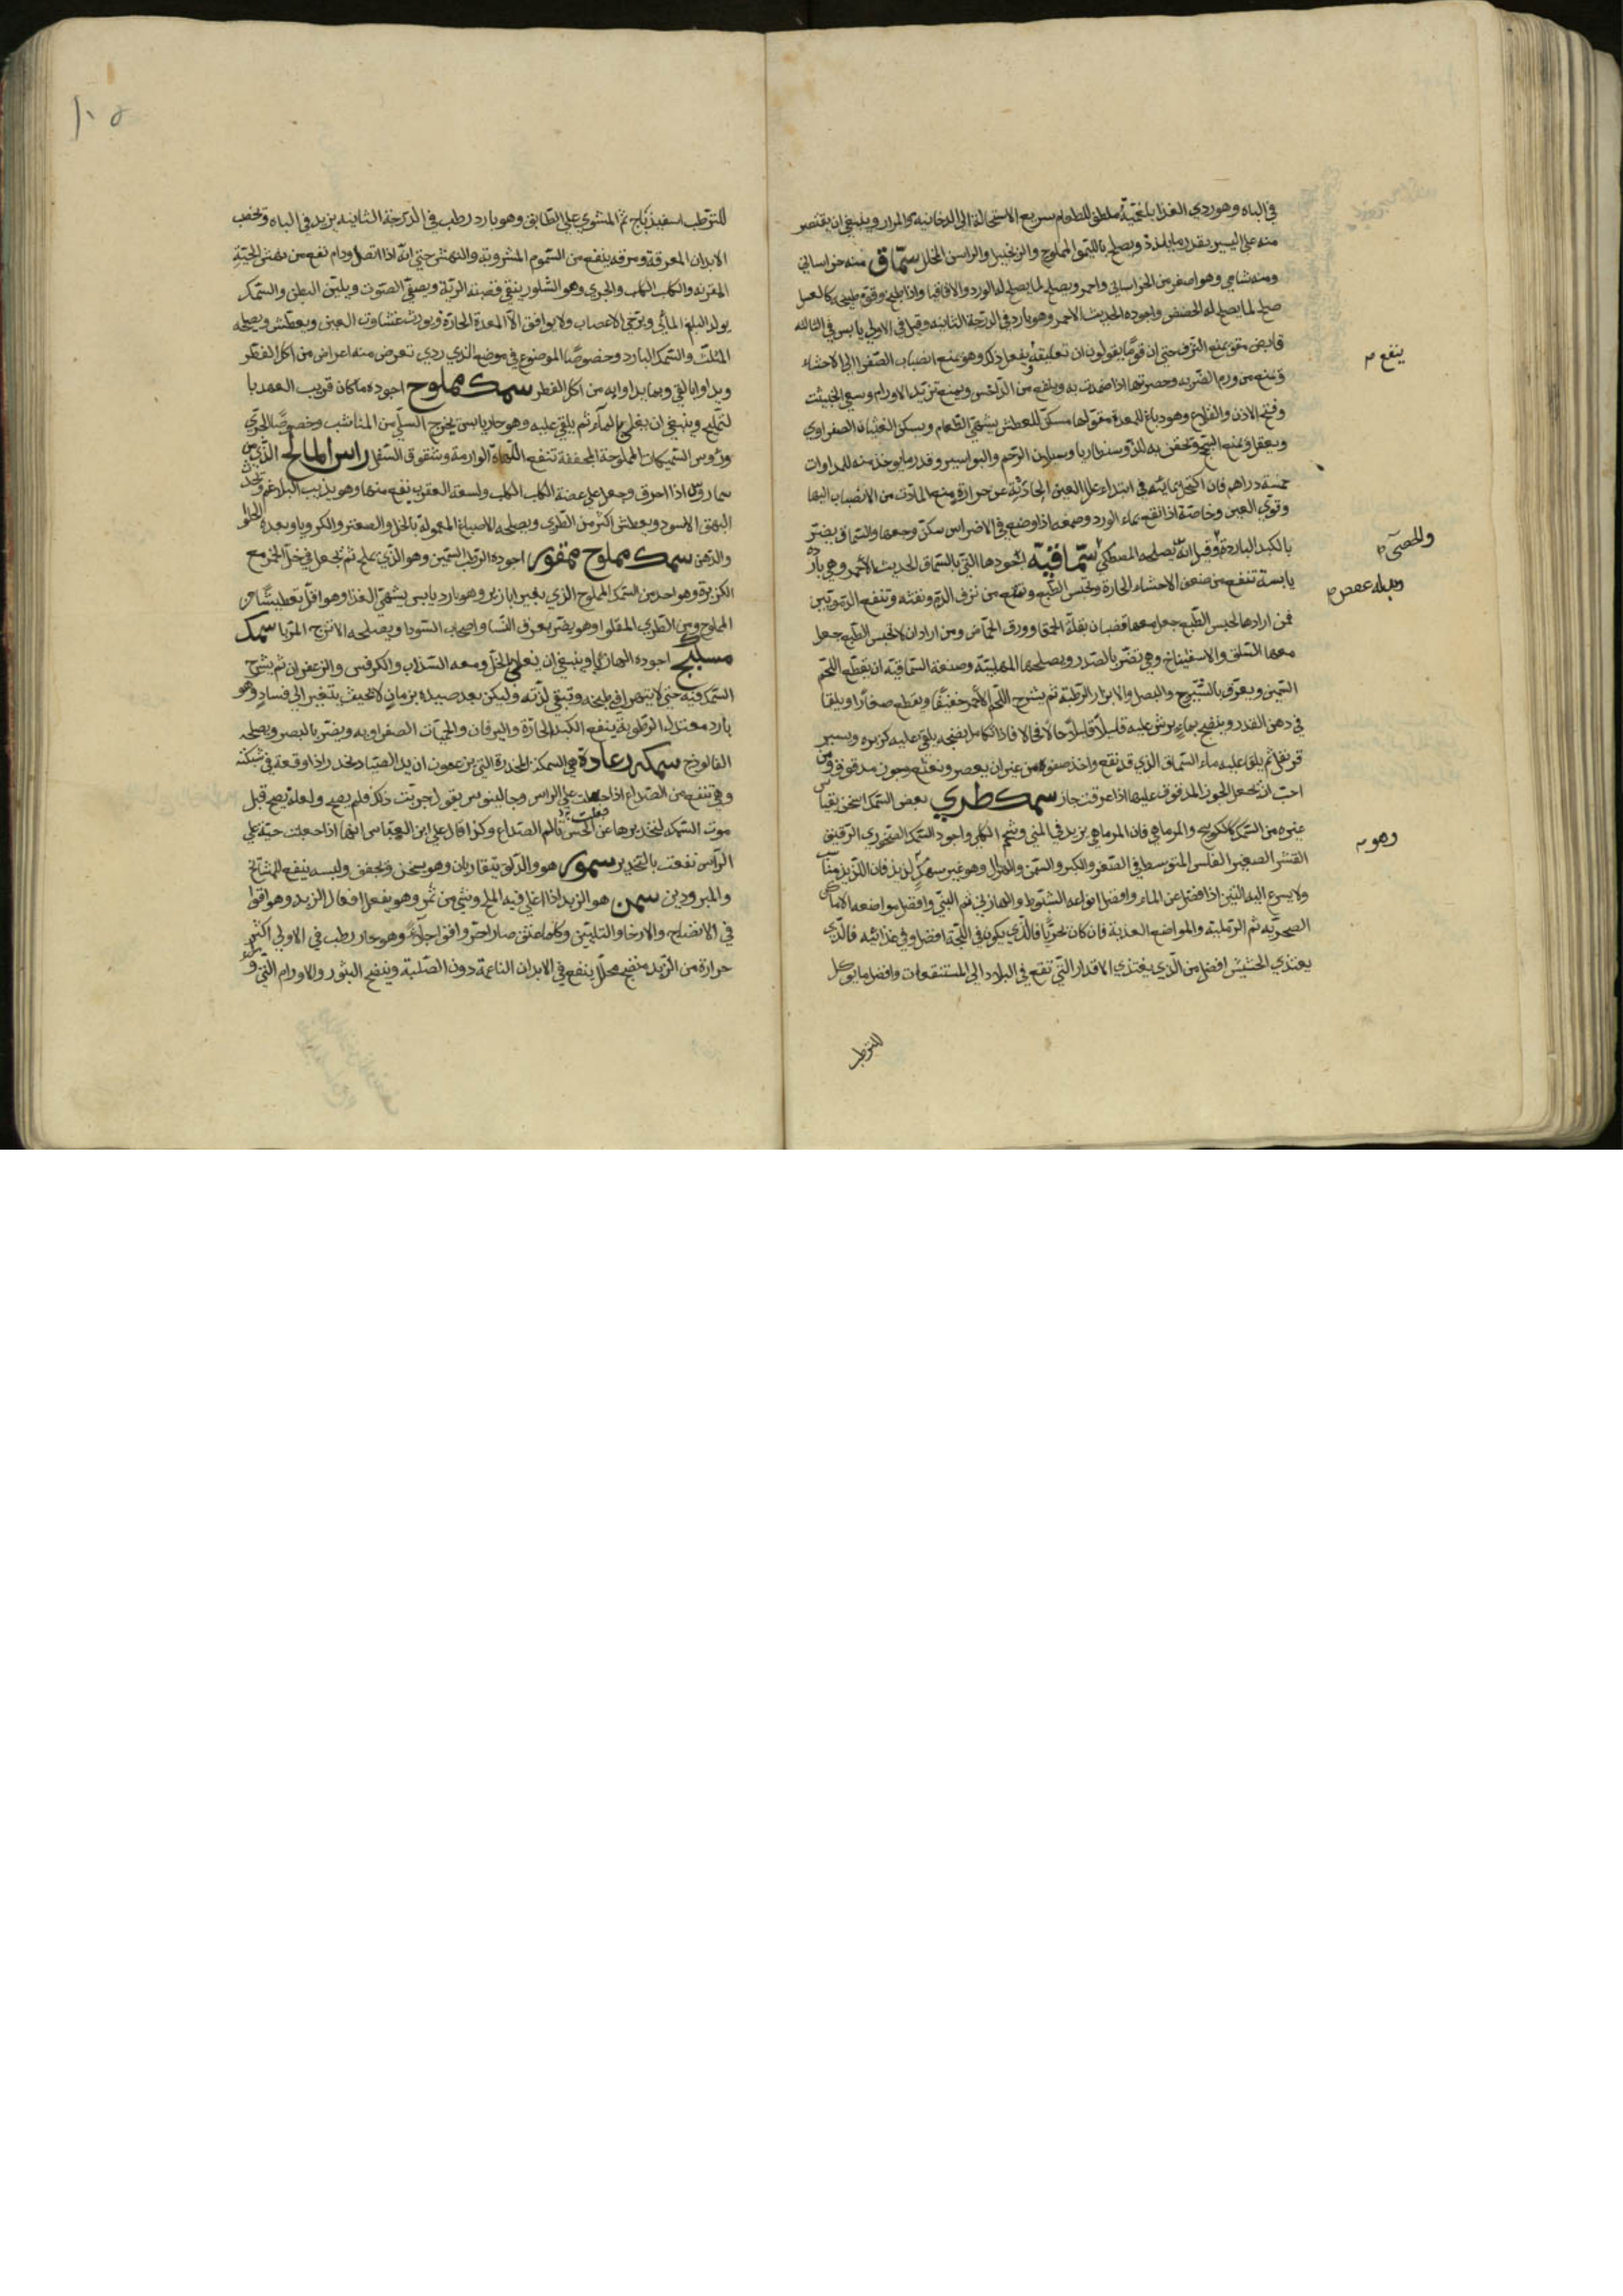 في الباه وهو ردي الغذا بلغميّة ملطف للطعام سريع الاستحالة الى الدخانية والمرار وينبغي ان يقتصر
منه على اليسير بقدر ما يلذذ ويصلح بالليمو المملوح والزنجبيل والراسن المخلل سمّاق منه خراساني
ومنه شامي وهو اصغر من الخراساني واحمر ويصلح لما يصلح له الورد والاقاقيا واذا طبخ وقوّم طبيخه كالعسل
صلح لما يصلح له الحضض واجوده الحديث الاحمر وهو بارد في الدرجة الثانيه وقيل في الاولى يابس في الثالثه
قابض مقو يمنع النزف حتى ان قوما يقولون ان تعليقه يفعل ذلك وهو يمنع انصباب الصفرا الى الاحشاء
ينفع
ويمنع من ورم الضربه وحصرتها اذا ضمدت به وينفع من الداحس ويمنع تزيد الاورام وسعي الخبيثة
وقيح الاذن والقلاع وهو دباغ للمعدة مقوّ لها مسكن للعطش يشهي الطعام ويسكن الغثيان الصفراوي
ويعقل ويمنع السحج ويحقن به للدوسنطاريا وسيلان الرحم والبواسير وقدر ما يوخذ منه للمداوات
خمسة دراهم فان اكتحل بمائه في ابتداء علل العين الحادثة عن حرارة منع المادة من الانصباب اليها
وقوّي العين وخاصة اذا نقع بماء الورد وصمغه اذا وضع في الاضراس سكن وجعها والسماق يضر
بالكبد الباردة وقيل انه يصلحه المصطكي سمّاقيّه اجودها التي بالسماق الحديث الاحمر وهي بارده
والحصى
يابسة تنفع من ضعف الاحشاء الحارة وتحبس الطبع وتنفع من نزف الدم ونفثه وتنفع الدمويين
فمن ارادها لحبس الطبع جعل معها قضبان بقلة الحمقا وورق الحماض ومن اراد ان لا تحبس الطبع جعل
معها السلق والاسفيناخ وهي تضر بالصدر ويصلحها المهلبيّه وصنعة السماقيه ان يقطع اللحم
السمين ويعرّق بالشيرج والبصل والابزار الرطبة ثم يشرح اللحم الاحمر خفيفا ويقطع صغارا ويلقا
في دهن القدر وينضج بماء يرش عليه قليلا قليلا حالا فحالا فاذا تكامل نضجه يلقى عليه كزبره ويسير
قرنفل ثم يلقا عليه ماء السماق الذي قد نقع واخذ صفوه من غير ان يعصر ونعنع وجوز مدقوق ومن
احب ان يجعل الجوز المدقوق عليها اذا عرقت جاز سمك طري بعض السمك اسخن بقياس
غيره من السمك كالكوسج والمرماهي فان المرماهي يزيد في المني وشحم الكلي واجود السمك الصخوري الرقيق
وهو
القشر الصغير الفلس المتوسط في الصغر والكبر والسمن والهزال وهو غير سهك لذيذ فان اللذيذ مناسب
ولا يسرع اليه النتن اذا فصل عن الماء وافضل انواعه الشبوط والهازبي ثم البني وافضل مواضعه الاماكن
الصخريه ثم الرمليه والمواضع العذبة فان كان بحريا فالذي يكون في اللجة افضل وفي غذائه فالذي
يغتذي الحشيش افضل من الذي يغتذي الاقذار التي تقع في البلاد الى المستنقعات وافضل ما يوكل
للترطب
١٠٥
للترطب اسفيذباج ثم المشوي على الطابق وهو بارد رطب في الدرجة الثانيه يزيد في الباه ويخصب
الابدان المعرقة ومرقه ينفع من السموم المشروبة والنهش حتى انه اذا اتصل ودام نفع من نهش الحيّة
المقرنه والكلب الكلب والجري وهو السلور ينقي قصبة الرئة ويصفي الصوت ويلين البطن والسمك
يولد البلغم المائي ويرخي الاعصاب ولا يوافق الا المعدة الحارة ويورث غشاوت العين ويعطش ويصلحه
المثلث والسمك البارد وخصوصا الموضوع في موضع الندي ردي تعرض منه اعراض من اكل الفطر
ويداوا بالقي وبما يداوا به من اكل الفطر سمك مملوح اجوده ما كان قريب العهد با
لتمليح وينبغي ان يغلى بالماء ثم يلقى عليه وهو حار يابس يخرج السلى من المناشب وخصوصا الجري
ورؤس السميكات المملوحة المجففة تنفع اللهاة الوارمة وشقوق السفل راس المالح الذي من
سماروس اذا احرق وجعل على عضة الكلب الكلب ولسعة العقرب نفع منها وهو يذيب البلاغم ويحدث
البهق الاسود ويعطش اكثر من الطري ويصلحه الاصباغ المعمولة بالخل والصعتر والكرويا وبعده الحلو
والدهن سمك مملوح ممقور اجوده الرطب السمين وهو الذي يملح ثم يجعل في خل الخمر مع
الكزبرة وهو احد من السمك المملوح الذي بغير ابازير وهو بارد يابس يشهي الغذا وهو اقل تعطيشا من
المملوح ومن الطري المقلوا وهو يضر بعرق النسا واصحاب السودا ويصلحه الاترج المربا سمك
مسكبج اجوده الهازبا وينبغي ان يغلى الخل ومعه السذاب والكرفس والزعفران ثم يشرح
السمك فيه حتى لا يتهرا في طبخه وتبقى لذته وليكن بعد صيده بزمان لا بحيث يتغير الى فساد وهو
بارد معتدل الرطوبة ينفع الكبد الحارة واليرقان والحميات الصفراويه ويضر بالبصر ويصلحه
الفالوذج سمكه رعادة هي السمكة المخدرة التي يزعمون ان يد الصياد تخدر اذا وقعت في شبكته
وهي تنفع من الصداع اذا جعلت على الراس وجالينوس يقول جربت ذلك فلم يصح ولعله يصح قبل
موت السمكه لتخديرها عن الحس بالم الصداع وكذا قال علي ابن العباس انها اذا جعلت حيّة على
الراس نفعت بالتخدير سمور هو والدلق يتقاربان وهو يسخن ويجفف ولبسه ينفع المشايخ
والمبرودين سمن هو الزبد اذا اغلي فيه الملح وشي من تمر وهو يفعل افعال الزبد وهو اقوا
في الانضاج والارخا والتليين وكلما عتق صار احر واقوا جلاء وهو حار رطب في الاولى اكثر
حرارة من الزبد منضج محلل ينفع في الابدان الناعمة دون الصلبة وينضج البثور والاورام التي